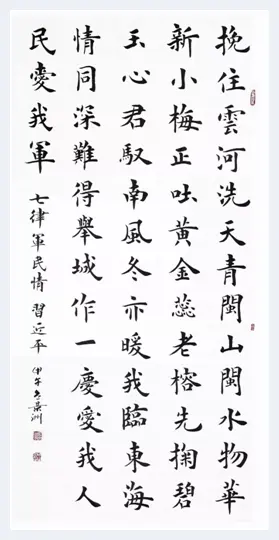 挽住雲河洗天青閩山閩水物華
新小梅正吐黃金蕊老榕先掬碧
玉心君馭南風冬亦暖我臨東海
情同深難得舉城作一慶愛我人
民愛我軍 七律軍民情 習近平 甲午